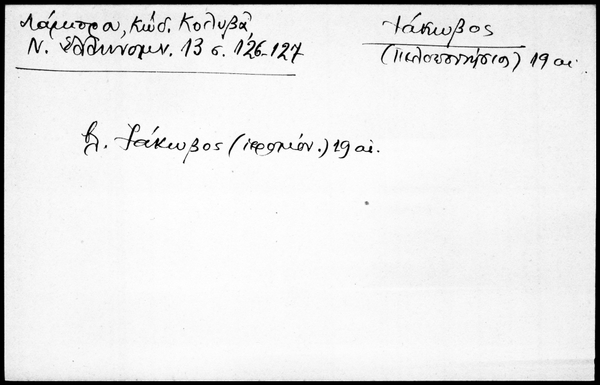 Λάμπρου, Κώδ. Κολυβᾶ,
Ν. Ἑλληνομν. 13 σ. 126-127
Ἰάκωβος
(Πελοποννήσιος) 19 αἰ.
βλ. Ἰάκωβος (ἱερομόν.) 19 αἰ.